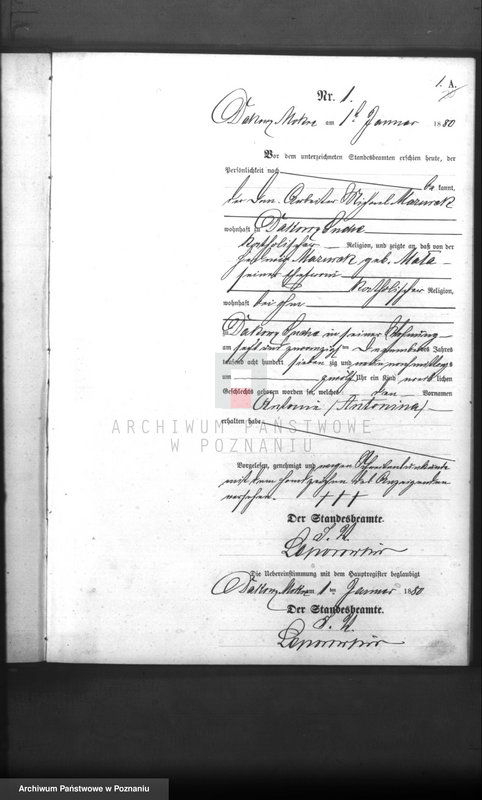 1. A.
Nr. 1.
Dakowy Mokre am 1t Januar 1880
Vor dem unterzeichneten Standesbeamten erschien heute, der
Persönlichkeit nach
be kannt,
der Arbeiter Michael Mazurek
wohnhaft in Dakowy Suche
katholischer Religion, und zeigte an, daß von der
Mazurek geb. Mała
seiner Ehefrau
katholischer Religion,
wohnhaft bei ihm
Dakowy Suche in seiner Wohnung
am sechs und zwanzigsten Dezember des Jahres
tausend acht hundert sieben zig und neun nachmittags
um zwölf Uhr ein Kind weib lichen
Geschlechts geboren worden sei, welches den Vornamen
Antonie (Antonina)
erhalten habe
ARCHIWUM PAŃSTWOWE
W POZNANIU
Vorgelesen, genehmigt und wegen Schreibensunkunde
mit dem Handzeichen des Anzeigenden
versehen. +++
Der Standesbeamte.
Die Uebereinstimmung mit dem Hauptregister beglaubigt
Dakowy Mokre am 1 ten Januar 1880
Der Standesbeamte.
Archiwum Państwowe w Poznaniu